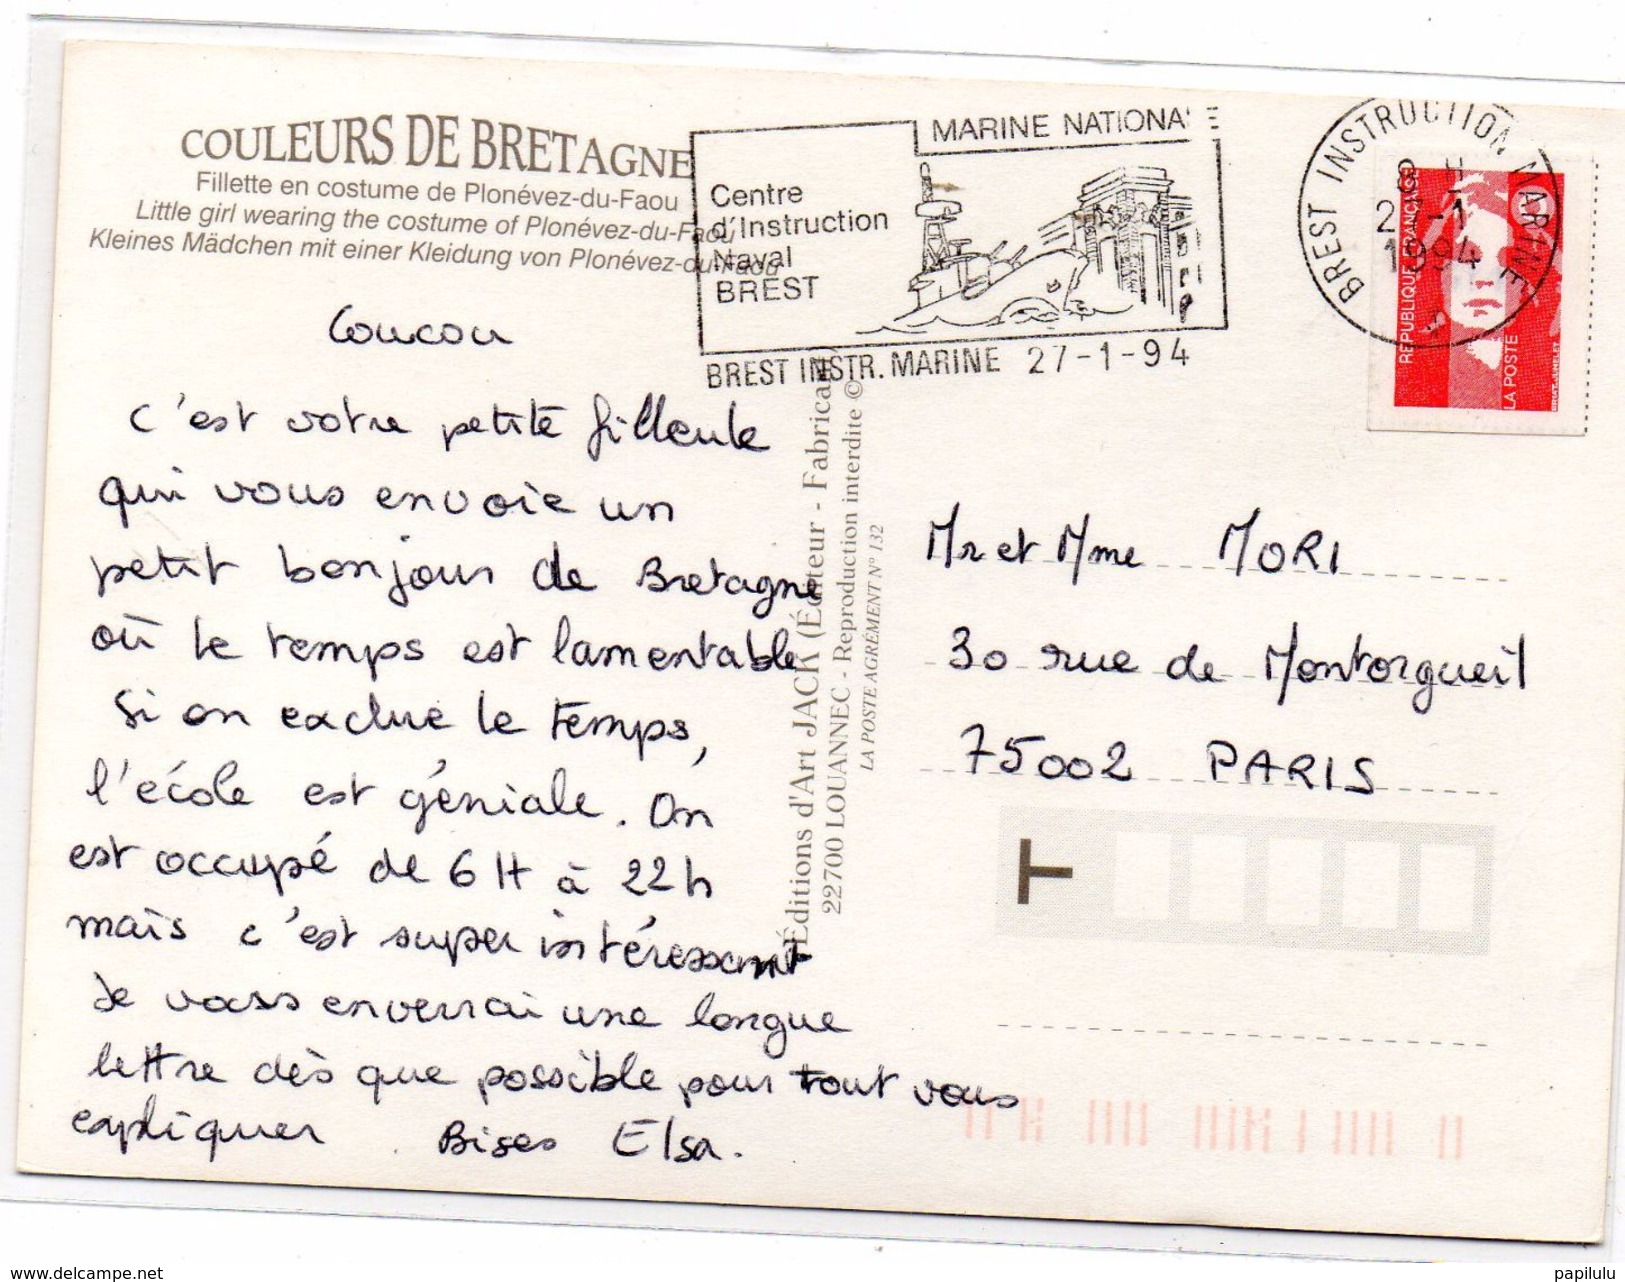 COULEURS DE BRETAGNE
Fillette en costume de Plonévez-du-Faou
Little girl wearing the costume of Plonévez-du-Faou
Kleines Mädchen mit einer Kleidung von Plonévez-du-Faou
MARINE NATIONA E
Centre
d'Instruction
Naval
BREST
BREST INSTR. MARINE 27-1-94
BREST INSTRUCTION MARINE
8 H
2 -1
1994
REPUBLIQUE FRANÇAISE
LA POSTE
BRIAT-JUMELET
Coucou
C'est votre petite filleule
qui vous envoie un
petit bonjour de Bretagne
où le temps est lamentable
Si on exclue le temps,
l'école est géniale. On
est occupé de 6H à 22h
mais c'est super intéressant
Je vous enverrai une longue
lettre dès que possible pour tout vous
expliquer. Bises Elsa.
Éditions d'Art JACK (Éditeur - Fabricant)
22700 LOUANNEC - Reproduction interdite ©
LA POSTE AGRÉMENT N° 132
Mr et Mme MORI
30 rue de Montorgueil
75002 PARIS
T
www.delcampe.net
papilulu